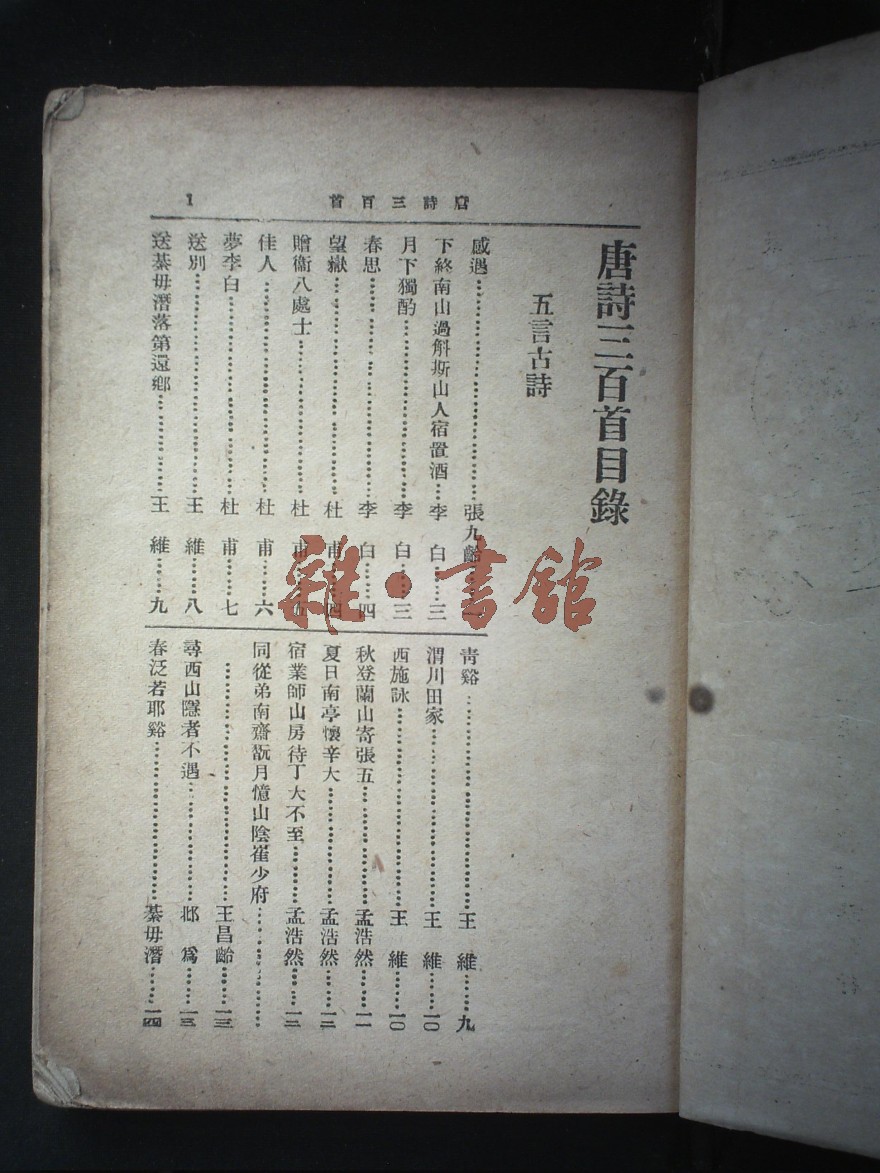 唐詩三百首
1
唐詩三百首目錄
五言古詩
感遇……張九齡……
下終南山過斛斯山人宿置酒…李 白……三
月下獨酌……李 白……三
春思……李 白……四
望嶽……杜 甫……四
贈衞八處士……杜 甫……五
佳人……杜 甫……六
夢李白……杜 甫……七
送別……王 維……八
送綦毋潛落第還鄉……王 維……九
青谿……王 維……九
渭川田家……王 維……一〇
西施詠……王 維……一〇
秋登蘭山寄張五……孟浩然……一一
夏日南亭懷辛大……孟浩然……一二
宿業師山房待丁大不至……孟浩然……一二
同從弟南齋翫月憶山陰崔少府……
……王昌齡……一三
尋西山隱者不遇……邱 爲……一三
春泛若耶谿……綦毋潛……一四
雜·書館